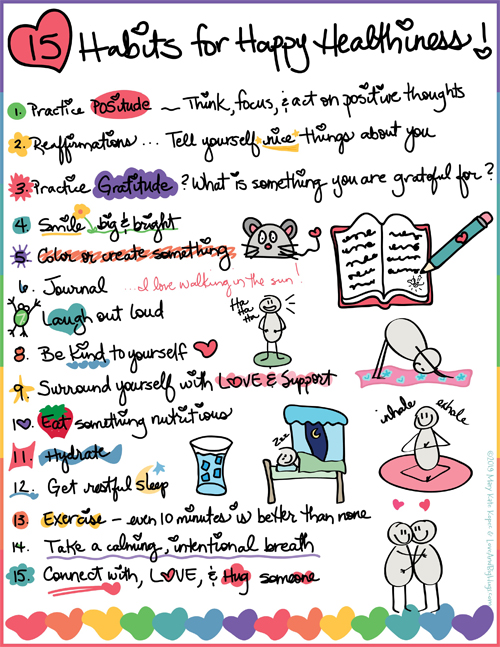 15 Habits for Happy Healthiness!
1. Practice Positude ~ Think, focus, & act on positive thoughts
2. Reaffirmations... Tell yourself nice things about you
3. Practice Gratitude? What is something you are grateful for?
4. Smile big & bright
5. Color or create something
6. Journal ...I love walking in the sun!
7 Laugh out loud
Ha
Ha
Ha
8. Be kind to yourself
9. Surround yourself with LOVE & Support
10. Eat something nutritious
inhale exhale
11. Hydrate
zzz
12. Get restful sleep
13. Exercise - even 10 minutes is better than none
14. Take a calming, intentional breath
15. Connect with, LOVE, & Hug someone